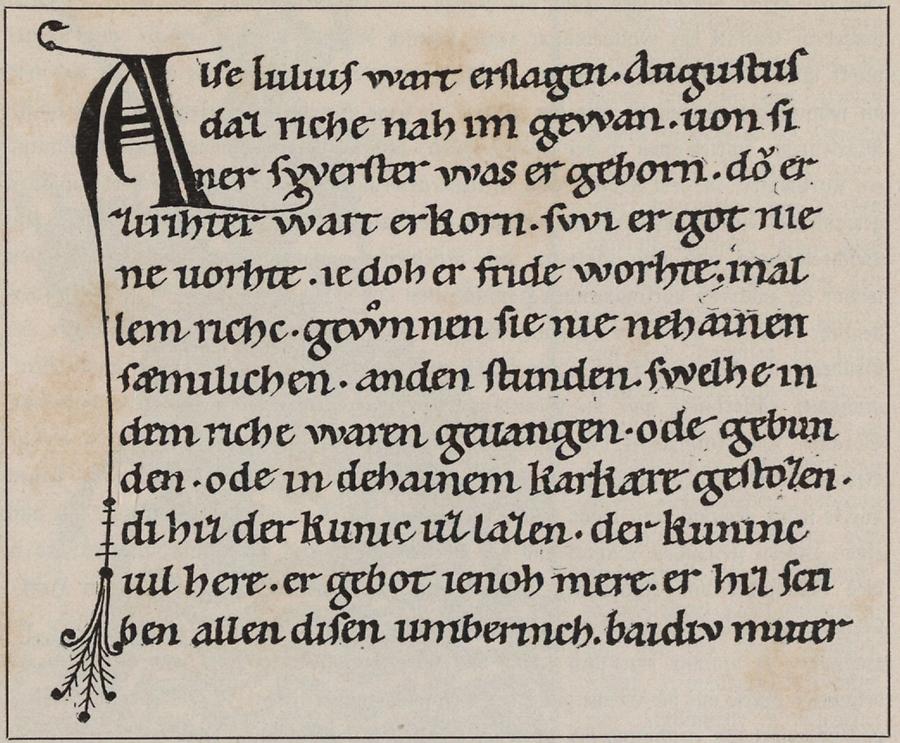 Alſe Iuliuſ wart erſlagen. Auguſtuſ
daz riche nah im gewan. uon ſi
ner ſwerſter was er geborn. do᷑ er
zurihter wart erkorn. ſwi er got nie
ne uorhte. ie doh er fride worhte. in al
lem riche. gewͦnnen ſie nie nehainen
ſæmilichen. anden ſtunden. ſwelhe in
dem riche waren geuangen. ode gebun
den. ode in dehainem karkære geſtozen.
di hiz der kunic uz lazen. der kuninc
uil here. er gebot ienoh mere. er hiz ſcri
ben allen diſen umberinch. baidiv muter